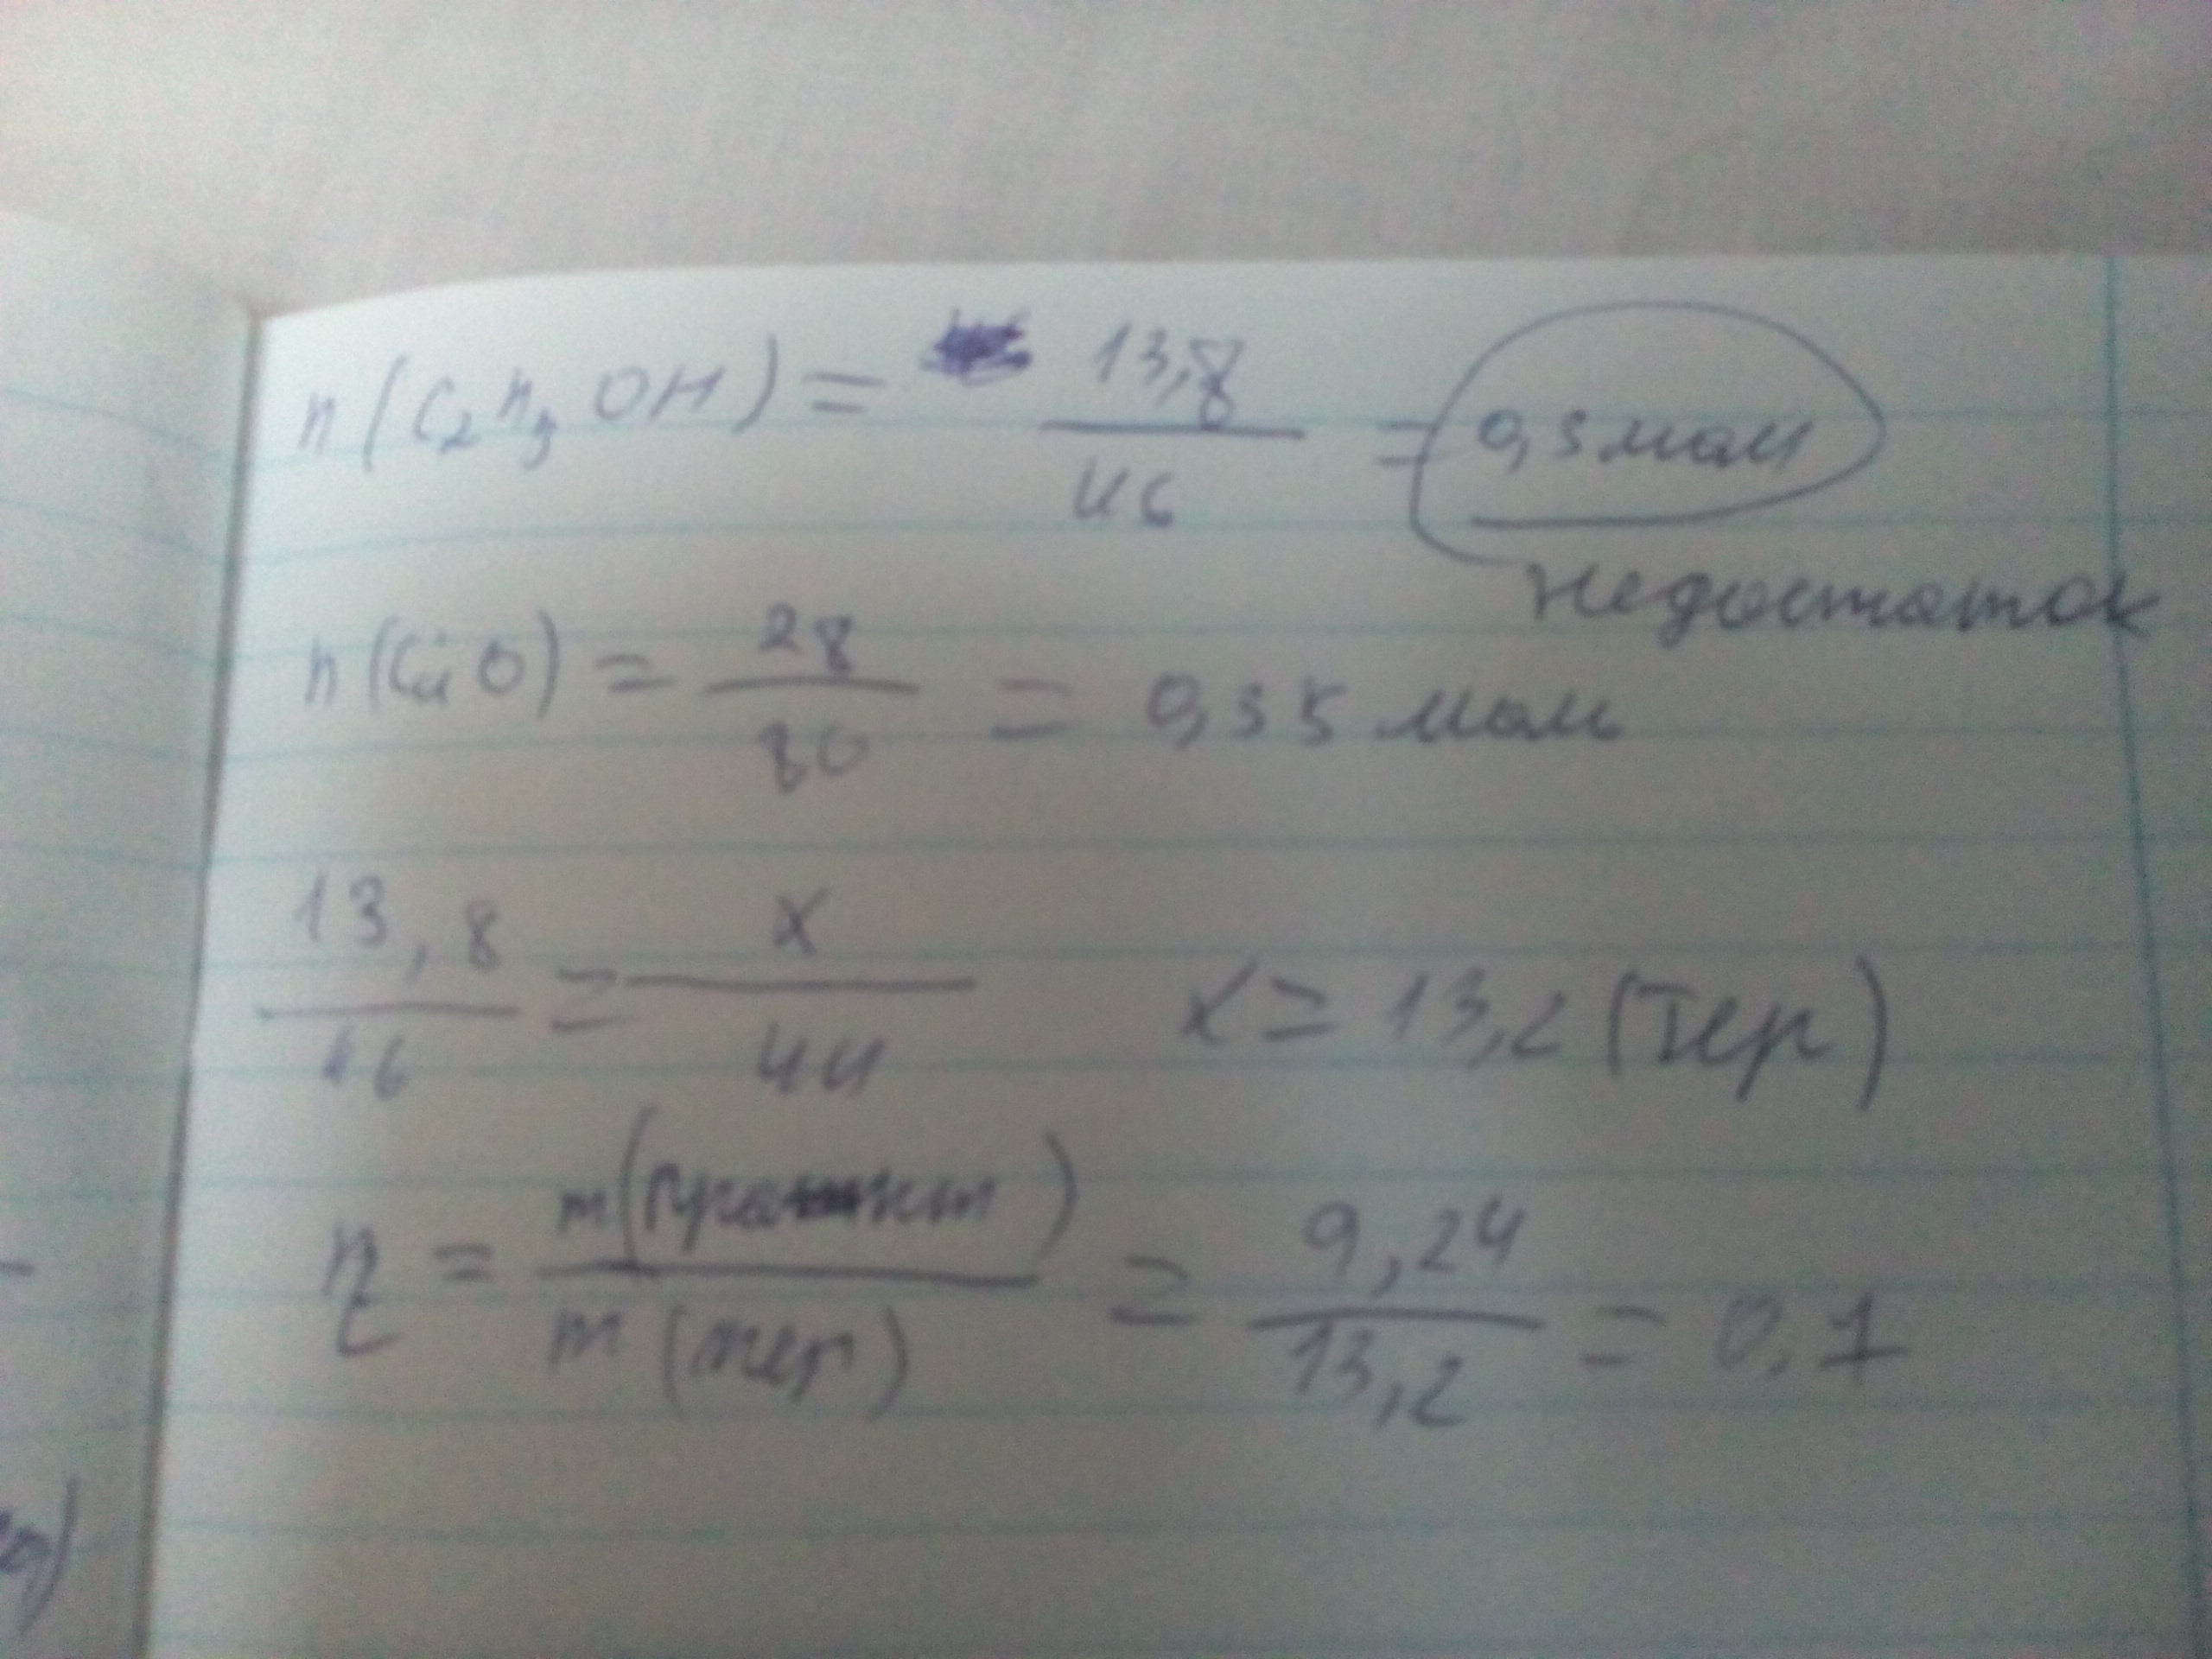 n(C₂H₅OH) = 13,8 / 46 = 0,3 моль
недостаток
n(CuO) = 28 / 80 = 0,35 моль
13,8 / 46 = x / 44 x = 13,2 (тер)
η = m(практ) / m(тер) = 9,24 / 13,2 = 0.7